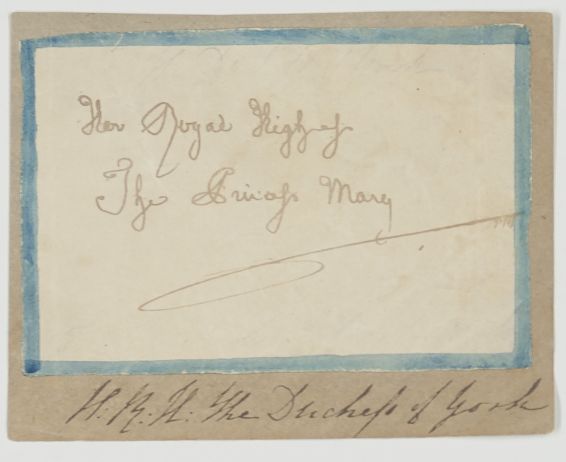 Her Royal Highness
The Princess Mary
H. R. H. The Duchess of York